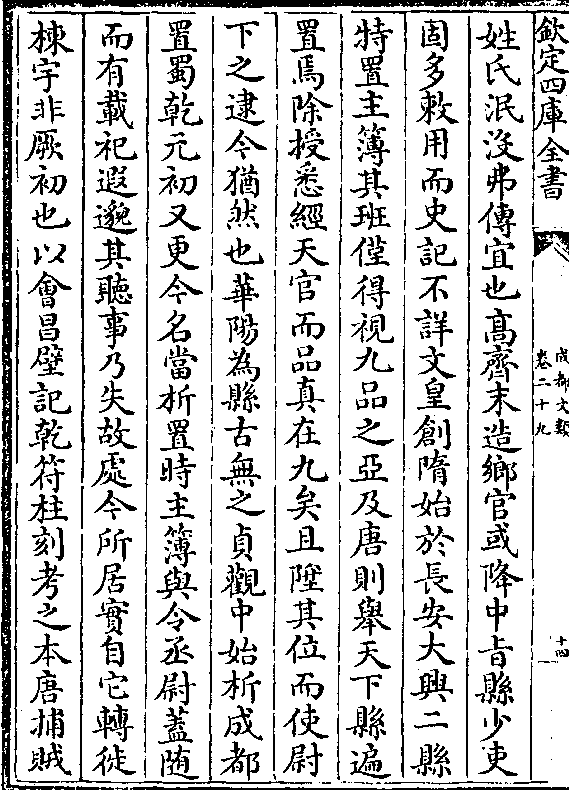 欽定四庫全書
成都文類
卷二十九
十四
姓氏泯没弗傳宜也髙齊末造鄉官或降中旨縣少吏
固多敕用而史記不詳文皇創隋始於長安大興二縣
特置主簿其班僅得視九品之亞及唐則舉天下縣遍
置焉除授悉經天官而品真在九矣且陞其位而使尉
下之逮今猶然也華陽為縣古無之貞觀中始析成都
置蜀乾元初又更今名當析置時主簿與令丞尉蓋随
而有載祀遐邈其聽事乃失故處今所居實自它轉徙
棟宇非厥初也以會昌壁記乾符柱刻考之本唐捕賊